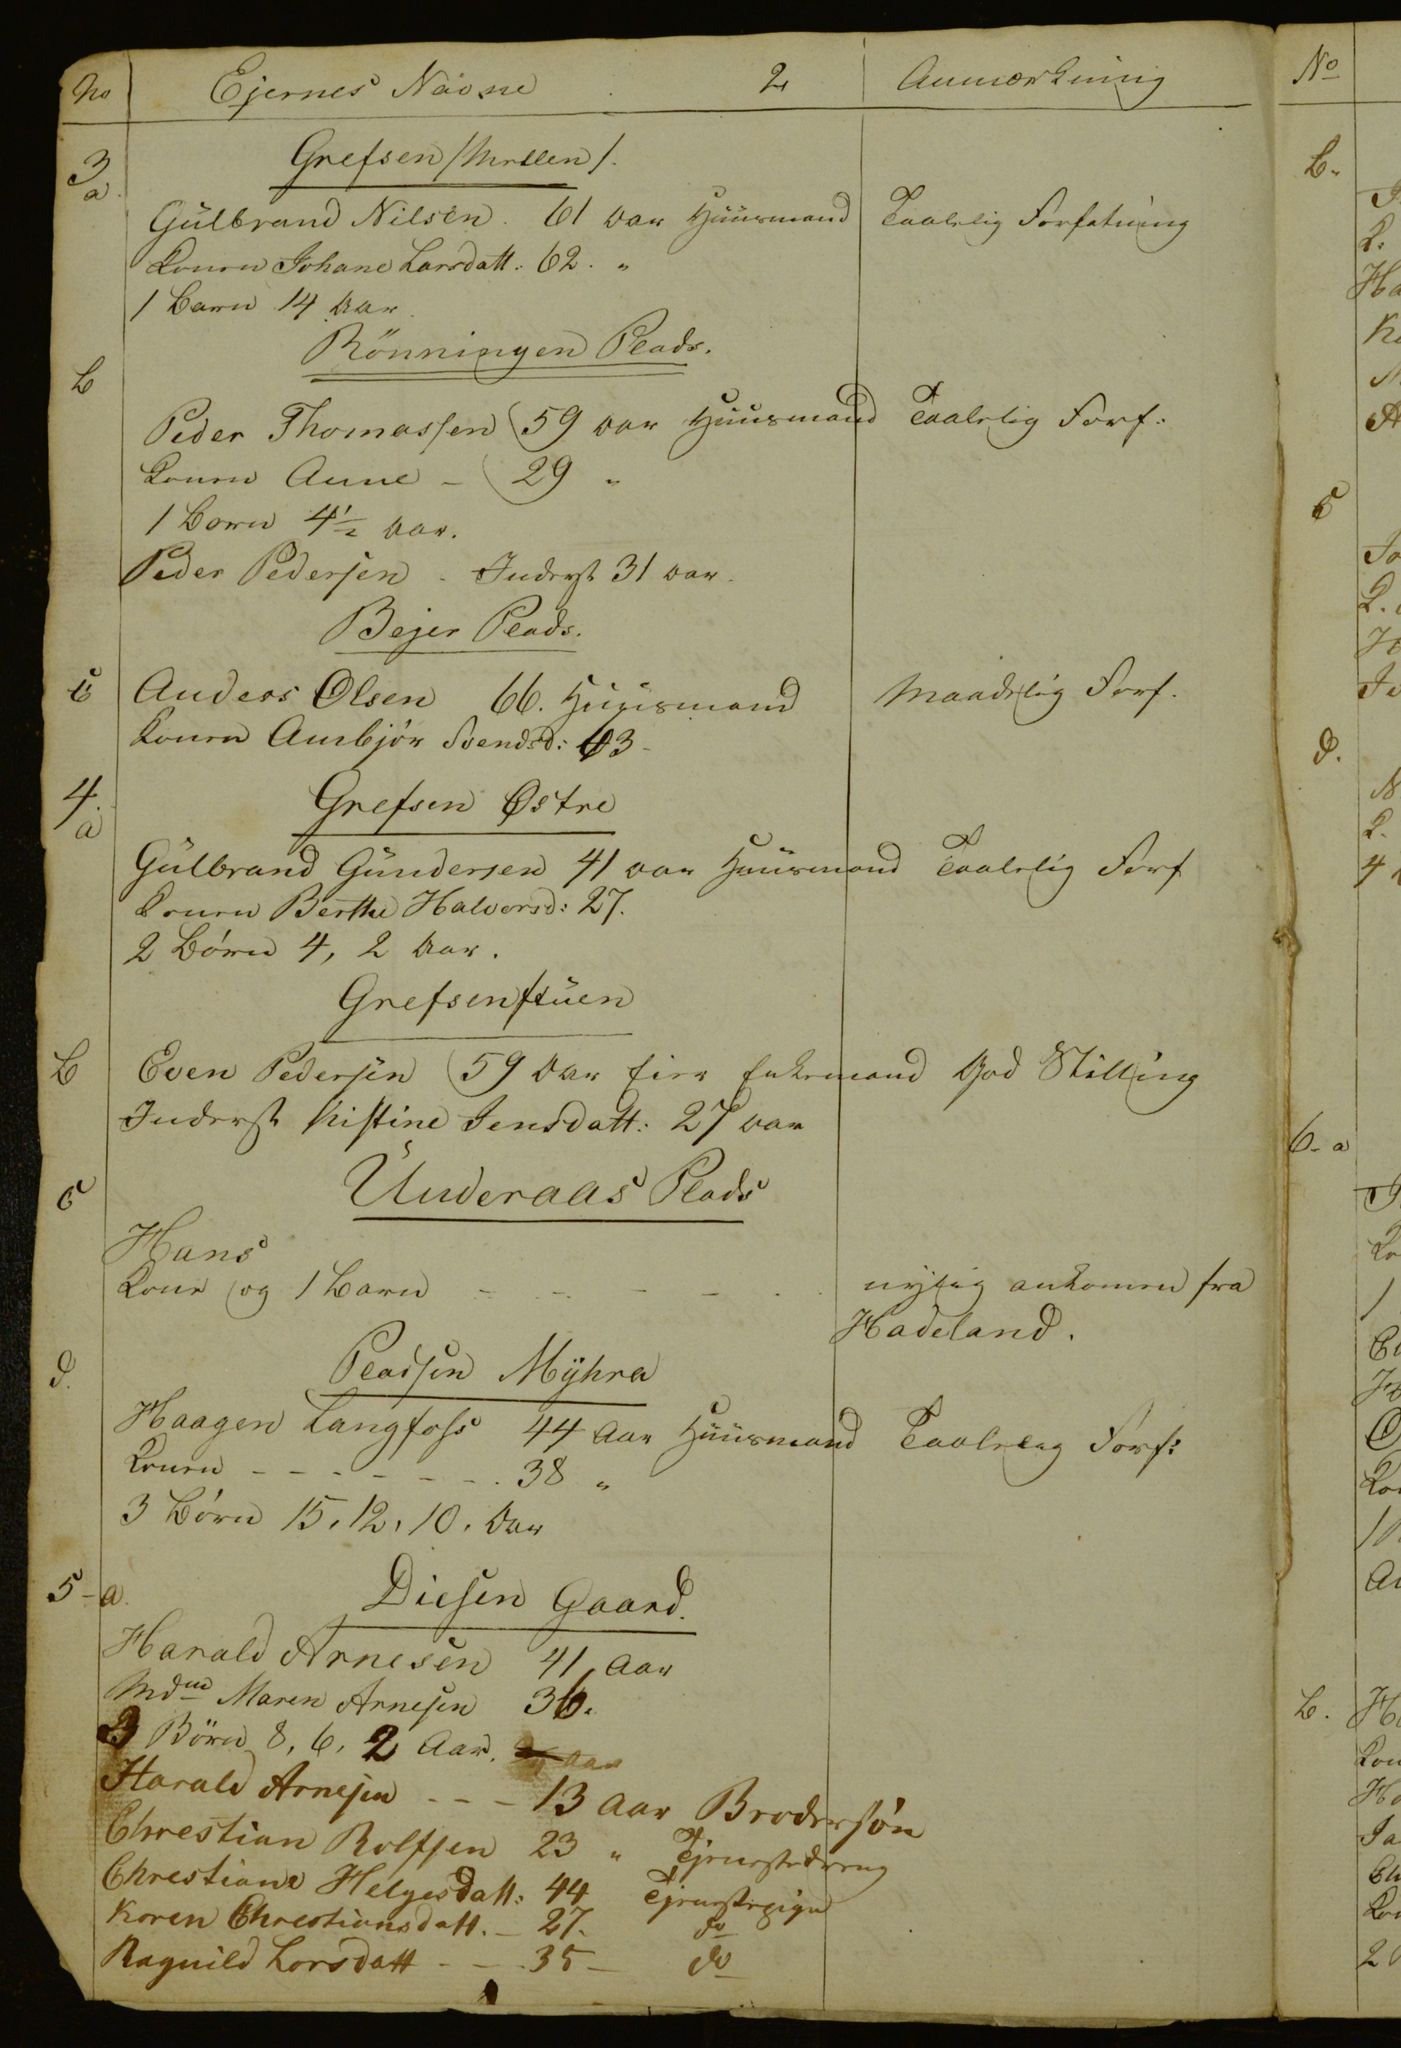 No Ejernes Navne 2 Anmærkning
3 a. Grefsen /Mellem/.
Gulbrand Nilsen. 61 aar Huusmand Taalelig Forfatning
Konen Johane Larsdatt: 62. "
1 Barn 14 Aar.
b Rönningen Plads.
Peder Thomassen 59 aar Huusmand Taalelig Forf:
Konen Anne - 29 "
1 Barn 4½ Aar.
Peder Pedersen. Inderst 31 aar.
Bejer Plads.
c Anders Olsen 66. Huusmand Maadelig Forf.
Konen Anbjör Svendsd: 63-
4. a Grefsen Østre
Gulbrand Gundersen 41 aar Huusmand Taalelig Forf
Konen Berthe Halvorsd: 27.
2 Börn 4, 2 Aar.
Grefsenstuen
b Even Pedersen 59 Aar Eier Enkemand God Stilling
Inderst Kistine Jensdatt: 27 aar
c Underaas Plads
Hans
Kone og 1 Barn - - - - nylig ankomen fra
Hadeland.
d. Pladsen Myhra
Haagen Langfoss 44 Aar Huusmand Taalelig Forf:
Konen - - - - - - - 38 "
3 Börn 15, 12, 10. Aar
5-a. Diesen Gaard.
Harald Arnesen 41 Aar
Mdme Maren Arnesen 36.
3 Börn 8, 6, 2 Aar. Aar
Harald Arnesen - - - 13 Aar Brodersön
Christian Rolfsen 23 " Tjenestedreng
Christiane Helgesdatt: 44 Tjenestepige
Karen Christiansdatt. - 27. do
Ragnild Larsdatt - - - 35 - do
No
b.
c
d.
6- a
b.